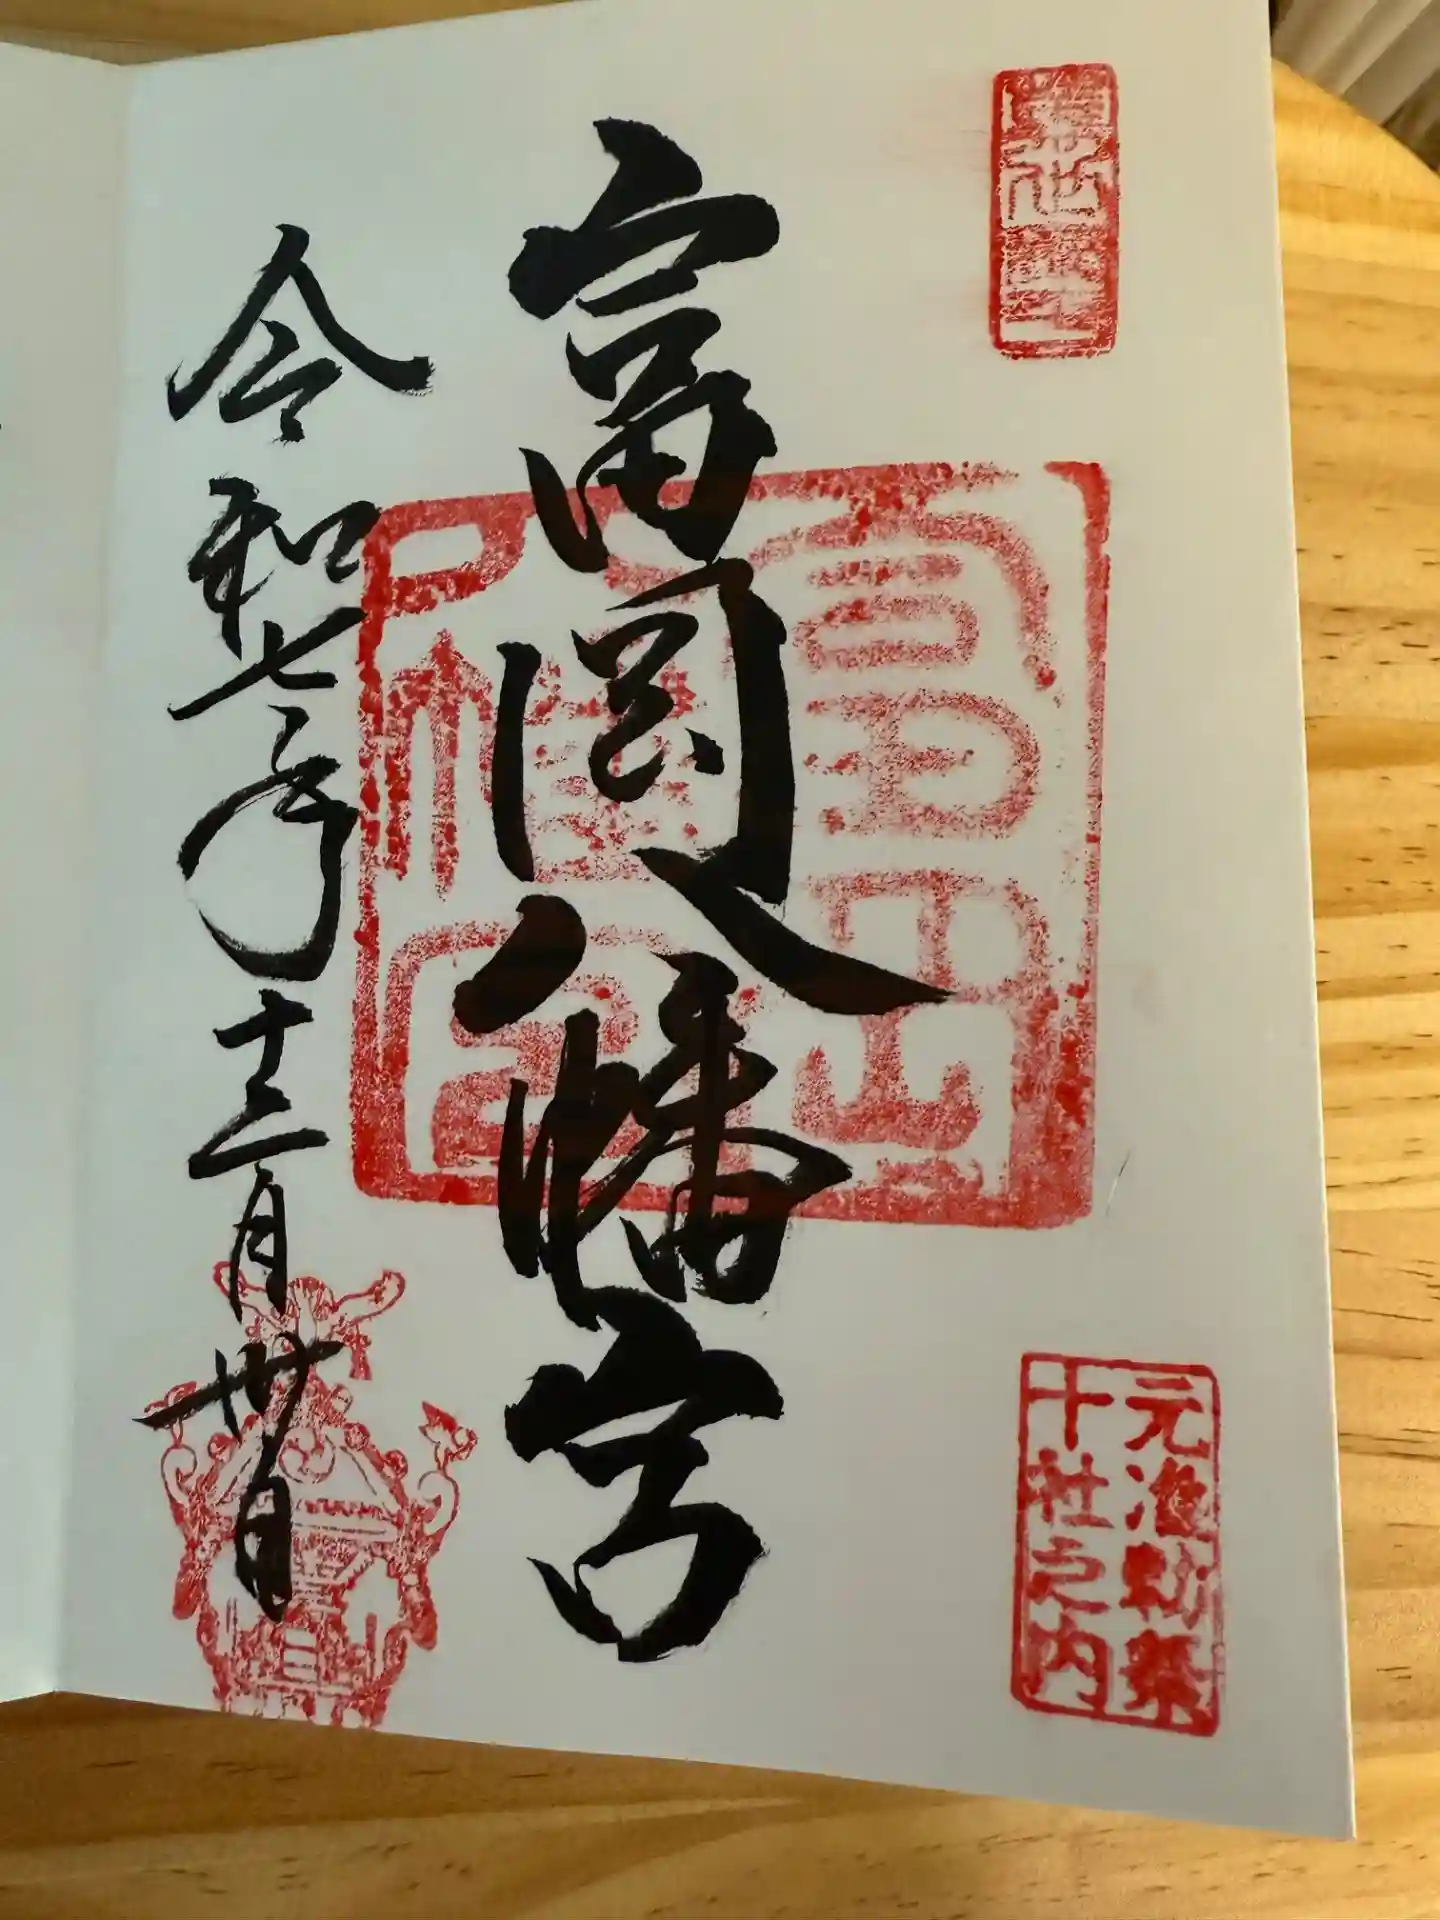 元准勅祭
十社之内
富岡
八幡宮
富岡八幡宮
令和七年十二月卅日